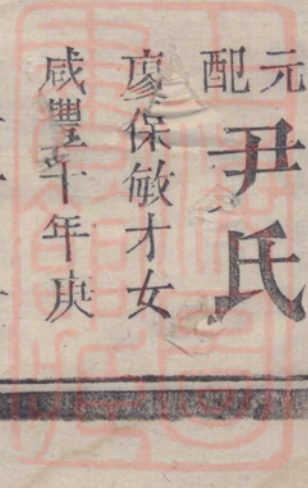 元配尹氏
廖保敏才女
咸豐十年庚